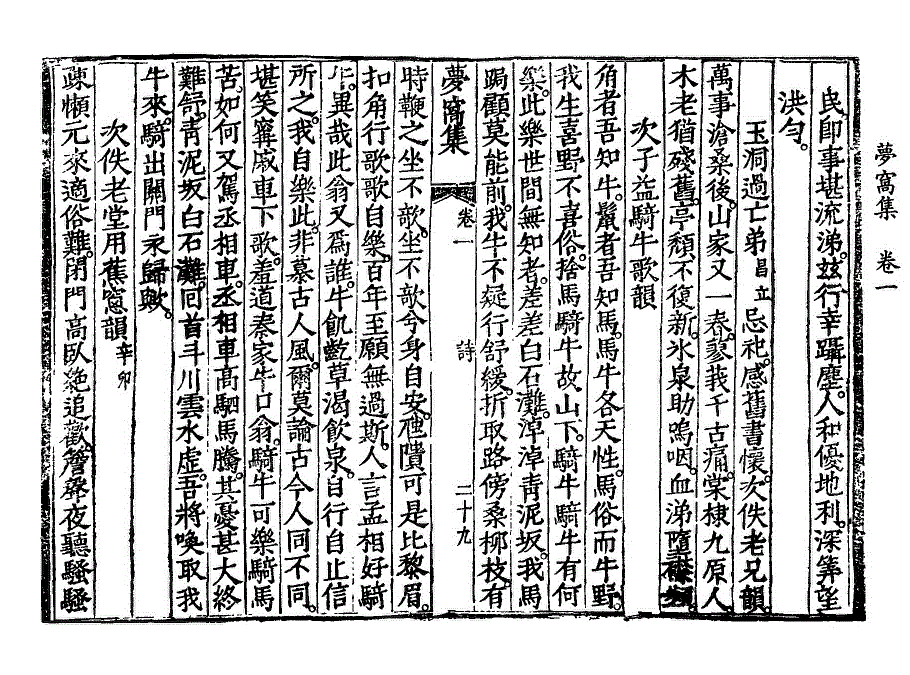 夢窩集　卷一
民即事堪流涕。玆行幸躡塵。人和優地利。深筭望
洪勻。
玉洞過亡弟昌立忌祀。感舊書懷。次佚老兄韻。
萬事滄桑後。山家又一春。蓼莪千古痛。棠棣九原人。
木老猶殘舊。亭頹不復新。氷泉助嗚咽。血涕墮
次子益騎牛歌韻
角者吾知牛。鬣者吾知馬。馬牛各天性。馬俗而牛野。
我生喜野不喜俗。捨馬騎牛故山下。騎牛騎牛有何
樂。此樂世間無知者。差差白石灘。淖淖靑泥坂。我馬
跼顧莫能前。我牛不疑行舒緩。折取路傍桑柳枝。有
夢窩集　卷一　詩　二十九
時鞭之坐不歌。坐不歌兮身自安。虺隤可是比黎眉。
扣角行歌歌自樂。百年至願無過斯。人言孟相好騎
牛。異哉此翁又爲誰。牛飢齕草渴飮泉。自行自止信
所之。我自樂此。非慕古人風。爾莫論古今人同不同。
堪笑寗戚車下歌。羞道秦家牛口翁。騎牛可樂騎馬
苦。如何又駕丞相車。丞相車高駟馬騰。其憂甚大終
難舒。靑泥坂白石灘。回首斗川雲水虛。吾將喚取我
牛來。騎出關門永歸歟。
次佚老堂用蕉窓韻辛卯
疎懶元來適俗難。閉門高臥絶追歡。簷 夜聽騷騷